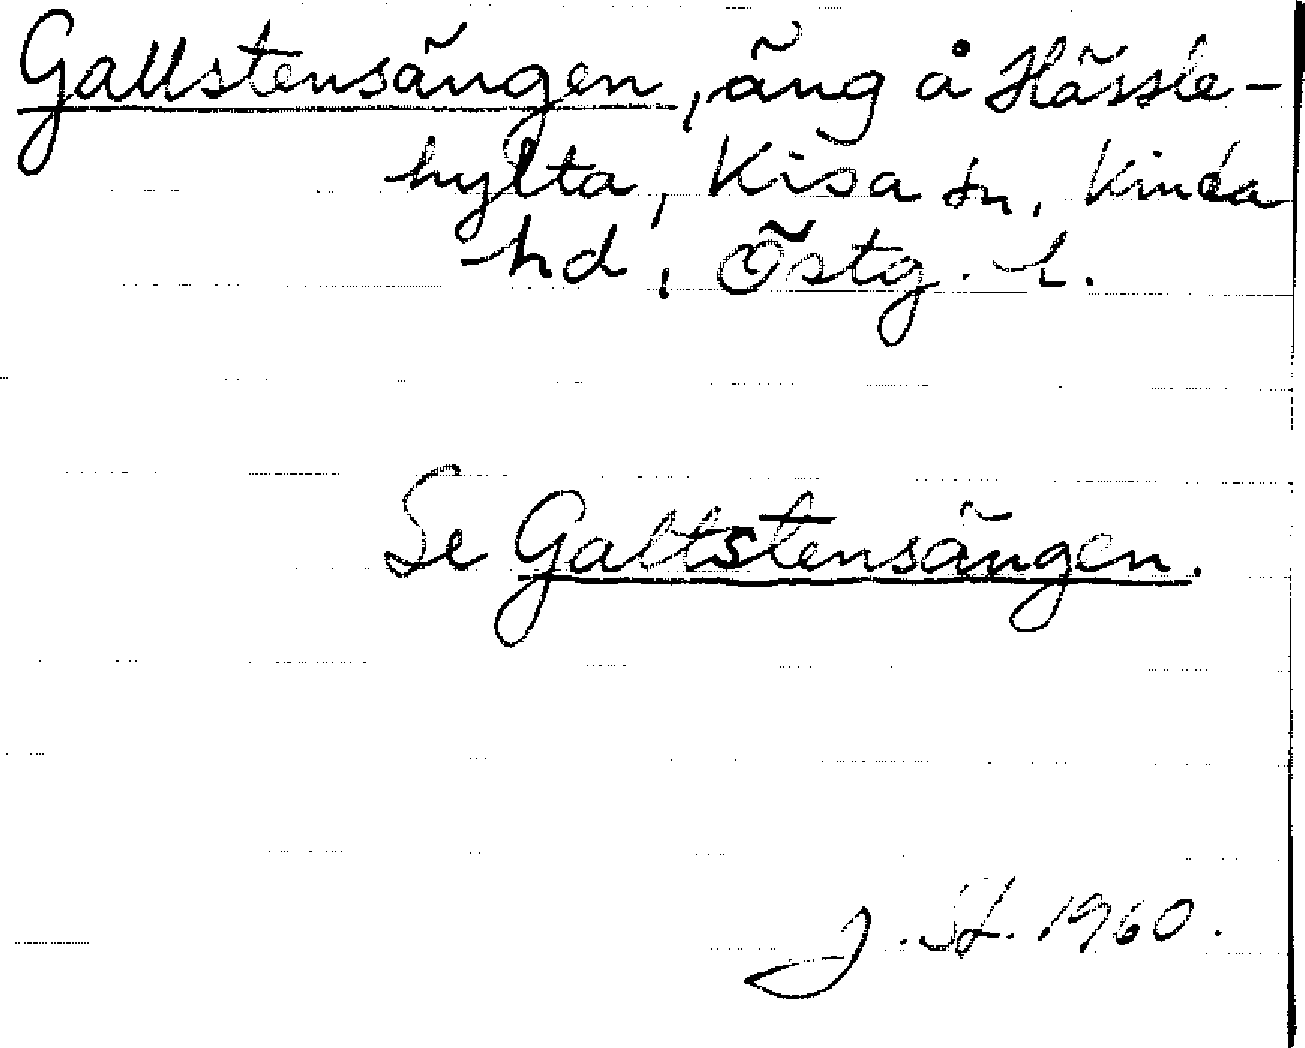 Gallstensängen, äng å Hässle-
hylta, Kisa sn, Kinda
hd, Östg. l.
Se Galtstensängen.
J. St. 1960.